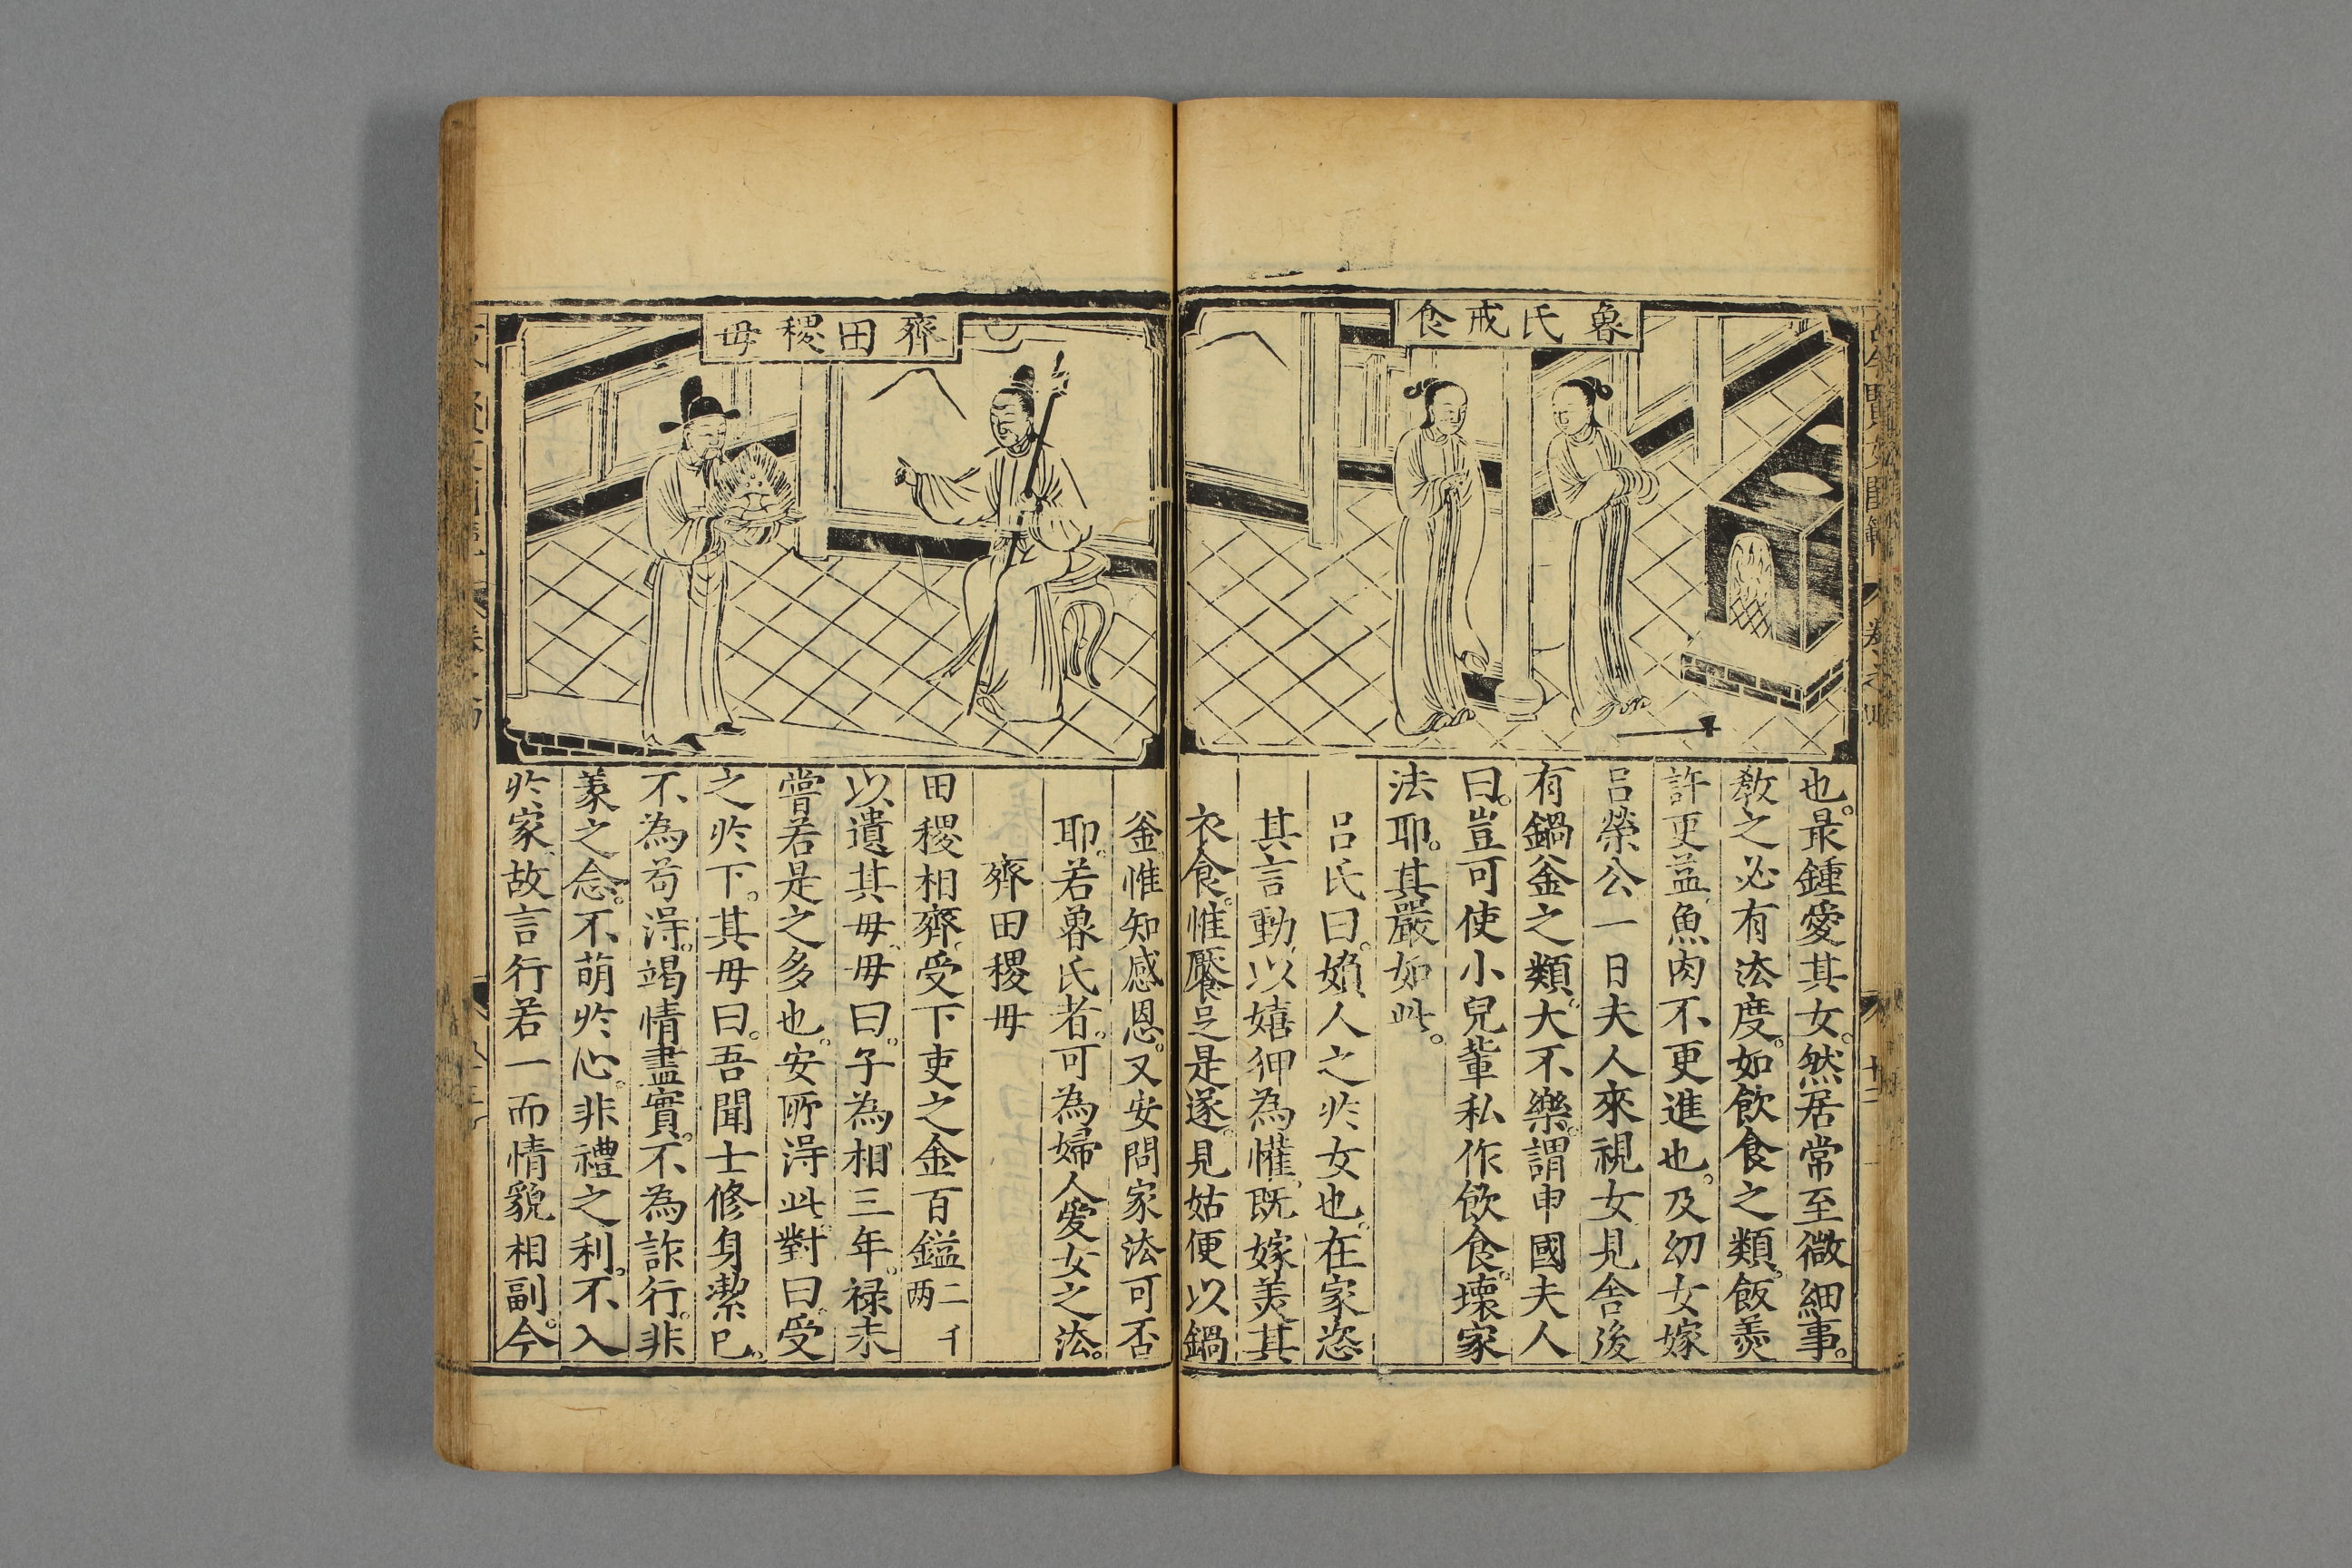 魯氏戒食
也。最鍾愛其女。然居常至微細事。
敎之必有法度。如飲食之類。飯羮
許更益。魚肉不更進也。及幼女嫁
呂榮公一日夫人來視女見舍後
有鍋釜之類。大不樂。謂申國夫人
曰。豈可使小兒輩私作飲食。壞家
法耶。其嚴如此。
呂氏曰。婦人之於女也。在家恣
其言動。以嬉狎為懽。既嫁美其
衣食。惟饜足是遂。見姑便以鍋
齊田稷母
釜。惟知感恩。又安問家法可否
耶。若魯氏者。可為婦人愛女之法。
齊田稷母
田稷相齊。受下吏之金百鎰二千両
以遺其母。母曰。子為相三年。禄未
嘗若是之多也。安所淂此。對曰。受
之於下。其母曰。吾聞士修身潔已。
不為苟淂。竭情盡實。不為詐行。非
義之念。不萌於心。非禮之利。不入
於家。故言行若一而情貌相副。今